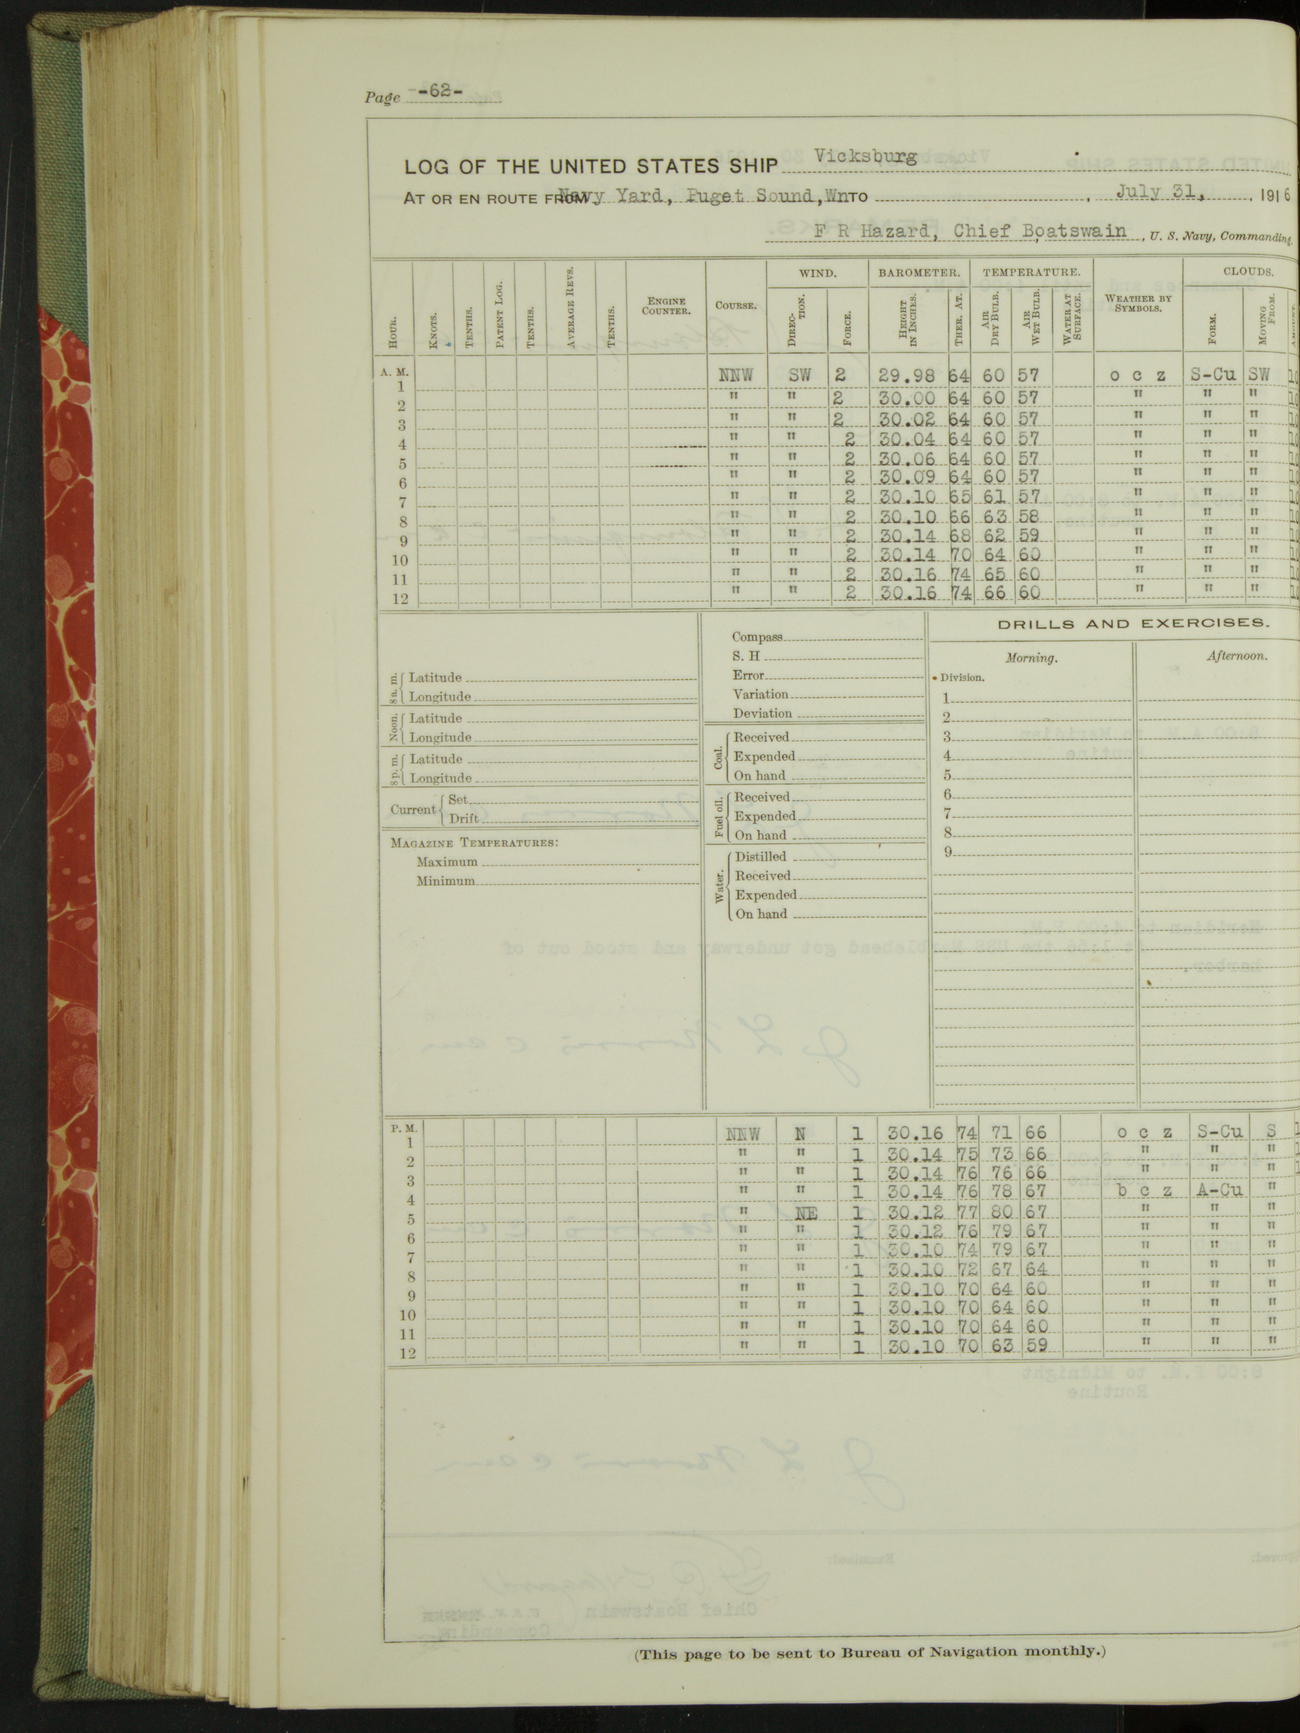 Page -62-
LOG OF THE UNITED STATES SHIP Vicksburg
AT OR EN ROUTE FROM Navy Yard, Puget Sound, Wn TO , July 31, , 1916
F R Hazard, Chief Boatswain , U. S. Navy, Commanding.
HOUR. KNOTS. TENTHS. PATENT LOG. TENTHS. AVERAGE REVS. TENTHS. ENGINE COUNTER. COURSE. WIND. DIRECTION. FORCE. BAROMETER. HEIGHT IN INCHES. THER. AT. TEMPERATURE. AIR DRY BULB. AIR WET BULB. WATER AT SURFACE. WEATHER BY SYMBOLS. CLOUDS. FORM. MOVING FROM.
A. M.
1 NNW SW 2 29.98 64 60 57 o c z S-Cu SW
2 " " 2 30.00 64 60 57 " " "
3 " " 2 30.02 64 60 57 " " "
4 " " 2 30.04 64 60 57 " " "
5 " " 2 30.06 64 60 57 " " "
6 " " 2 30.09 64 60 57 " " "
7 " " 2 30.10 65 61 57 " " "
8 " " 2 30.10 66 63 58 " " "
9 " " 2 30.14 68 62 59 " " "
10 " " 2 30.14 70 64 60 " " "
11 " " 2 30.16 74 65 60 " " "
12 " " 2 30.16 74 66 60 " " "
8 a. m. Latitude
Longitude
Noon. Latitude
Longitude
8 p. m. Latitude
Longitude
Current Set
Drift
MAGAZINE TEMPERATURES:
Maximum
Minimum
Compass
S. H
Error
Variation
Deviation
Coal. Received
Expended
On hand
Fuel oil. Received
Expended
On hand
Water. Distilled
Received
Expended
On hand
DRILLS AND EXERCISES.
Morning. Afternoon.
Division.
1
2
3
4
5
6
7
8
9
P. M.
1 NNW N 1 30.16 74 71 66 o c z S-Cu S
2 " " 1 30.14 75 73 66 " " "
3 " " 1 30.14 76 76 66 " " "
4 " " 1 30.14 76 78 67 b c z A-Cu "
5 " NE 1 30.12 77 80 67 " " "
6 " " 1 30.12 76 79 67 " " "
7 " " 1 30.10 74 79 67 " " "
8 " " 1 30.10 72 67 64 " " "
9 " " 1 30.10 70 64 60 " " "
10 " " 1 30.10 70 64 60 " " "
11 " " 1 30.10 70 64 60 " " "
12 " " 1 30.10 70 63 59 " " "
(This page to be sent to Bureau of Navigation monthly.)